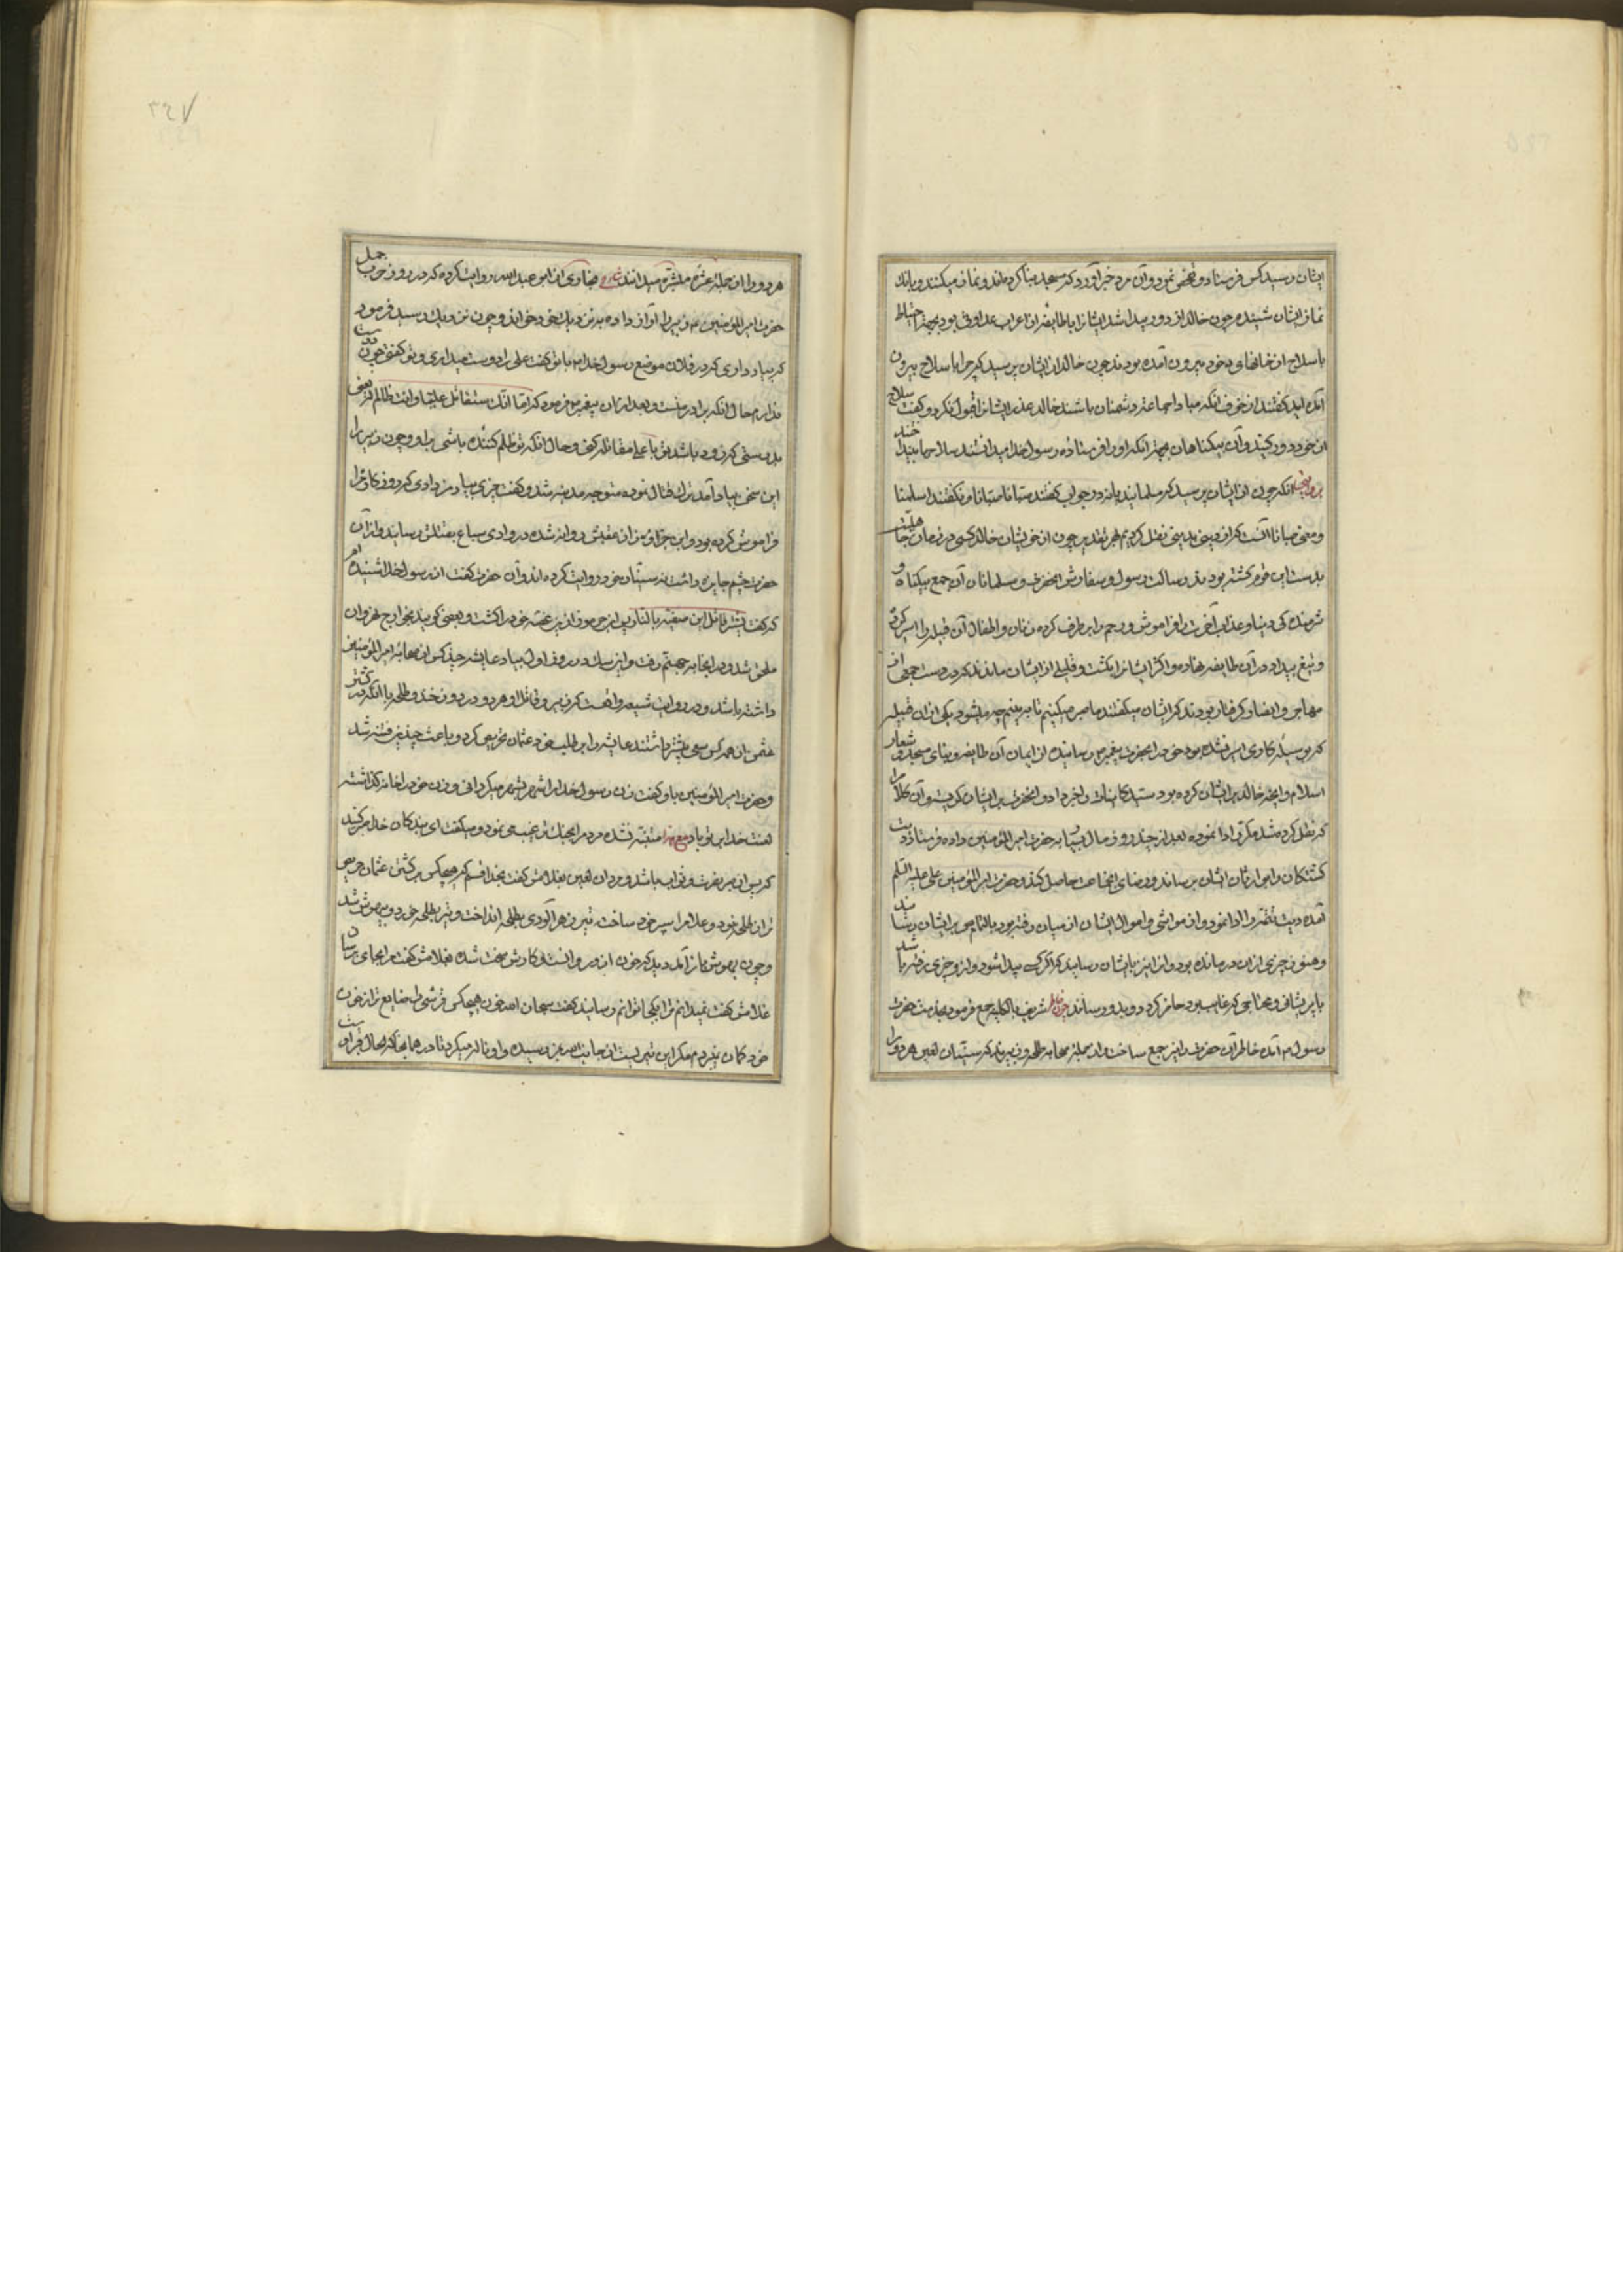 ایشان رسید کس فرستاد و تفحص نمود و آن مرد خبر آورد که مسجد بنا کرده‌اند و نماز میکنند و بانک
نماز ایشان شنیده چون خالد از دور پیدا شد ایشانرا با طایفه از اعراب عداوتی بود بجهة احتیاط
با سلاح از خانهای خود بیرون آمده بودند چون خالد از ایشان پرسید که چرا با سلاح بیرون
آمده‌اید گفتند از خوف آنکه مبادا جماعت دشمنان باشند خالد عذر ایشانرا قبول نکرد و گفت سلاح
از خود دور کنید و آن بیگناهان بجهة آنکه او را فرستاده رسول خدا میدانستند سلاحها بینداختند
بروایتی آنکه چون از ایشان پرسید که مسلمانید یا نه در جواب گفتند صبانا صبانا و نگفتند اسلمنا
و معنی صبانا آنست که از دینی بدینی نقل کردیم بهر تقدیر چون از خویشان خالد کسی در زمان جاهلیت
بدست این قوم کشته بود پند رسالت رسول و سفارش آنحضرت و مسلمانان آن جمع بیگناه و
شرمندگی دنیا و عذاب آخرت را فراموش و رحم را بر طرف کرده زنان و اطفال آن قبیله را اسیر کرد
و تیغ بیداد در آن طایفه نهاده و اکثر ایشانرا بکشت و قلیلی از ایشان ماندند که در دست جمعی از
مهاجر و انصار گرفتار بودند که ایشان میگفتند ما صبر میکنیم تا ببینیم چه میشود یکی از آن قبیله
که بوسیله کاری اسیر نشده بود خود را بحضرت پیغمبر ص رسانیده از ایمان آن طایفه و بنای مسجد و شعار
اسلام و آنچه خالد بر ایشان کرده بود سید کاینات را خبر داد و آنحضرت بر ایشان بگریست و آن کلام را
که نقل کرده شد مکرر ادا نموده بعد از چند روز مال بسیار به حضرت امیر المؤمنین داده فرستاد و دیت
کشتگان را بوارثان ایشان برساند و رضای آنجماعت حاصل کند و حضرت امیر المؤمنین علی علیه السلم
آمده دیت را ادا نمود و از مواشی و اموال ایشان از میان رفته بود بالتمام بر ایشان رسانید
و هنوز چیزی از آن در مانده بود و آنرا نیز بایشان رسانید که اگر کسی پیدا شود و از و چیزی رفته باشد
با پریشانی و محتاجی که غایب بود حاضر گردد و بدو رسانند شریف بالکلیه جمع فرمود بخدمت حضرت
رسول ص آمده خاطر آن حضرت را نیز جمع ساخت و از جمله صحابه طلحه و زبیرند که سنیان لعین هر دو را
هر دو را از جمله عشره مبشره میدانند از ابو عبد الله روایت کرده که در روز حرب جمل
حضرت امیر المؤمنین ع زبیر را آواز داده بنزدیک خود خواند و چون نزدیک رسید فرمود
که بیاد داری که در فلان موضع رسول خدا ص با تو گفت علی را دوست میداری و تو گفتی چون دوست
ندارم حال آنکه برادر منست و بعد از آن پیغمبر ص فرمود که اما انک ستقاتل علیا و انت ظالم له یعنی
بدرستی که زود باشد تو با علی مقاتله کنی و حال آنکه تو ظلم کننده باشی براو و چون زبیر را
این سخن بیاد آمد ترک قتال نموده متوجه مدینه شد و گفت چیزی بیاد من دادی که روزگار مرا
فراموش کرده بود و ابن جرموز از عقبش روانه شده در وادی سباع بقتلش رسانید و از آن
حضرت چشم جایزه داشت سنیان خود روایت کرده‌اند و آن حضرت گفت از رسول خدا شنیده‌ام
که گفت بشر قاتل ابن صفیه بالنار ابن جرموز از این غصه خود را کشت و بعضی گویند بخوارج نهروان
ملحق شد و در آنجا به جهنم رفت و این سگ در روز اول بیاد عایشه چند کس از صحابه امیر المؤمنین
داشته باشد و در روایت شیعه واقعست که زبیر و قاتل او هر دو در دوزخند و طلحه با آنکه در کشتن
عثمان از همه کس سعی بیشتر داشتند عایشه را بر طلب خون عثمان تحریص کرد و باعث چندین فتنه شد
و حضرت امیر المؤمنین باو گفت زن رسول خدا را شهر بشهر میگردانی و زن خود را بخانه گذاشته
لعنت خدا بر تو باد متنبه نشده مردم را بجنگ ترغیب می نمود و میگفت ای بندگان خدا صبر کنید
که پس از صبر نصرت و ثواب باشد و مروان لعین بغلامش گفت بخدا قسم که هیچکس بر کشتن عثمان حریص
تر از طلحه نبود و غلام را سپر خود ساخته تیر زهر آلودی بطلحه انداخت و تیر بطلحه خورد و بیهوش شد
و چون بهوش باز آمد دید که خون از و روانست و کارش سخت شده بغلامش گفت مرا بجای برسان
غلامش گفت نمیدانم ترا بکجا توانم رسانید گفت سبحان الله خون هیچکس قرشی را ضایع تر از خون
خود گمان نبردم مگر این تیریست از جانب رسیده و او ناله میکرد تا در همانجا که بحال